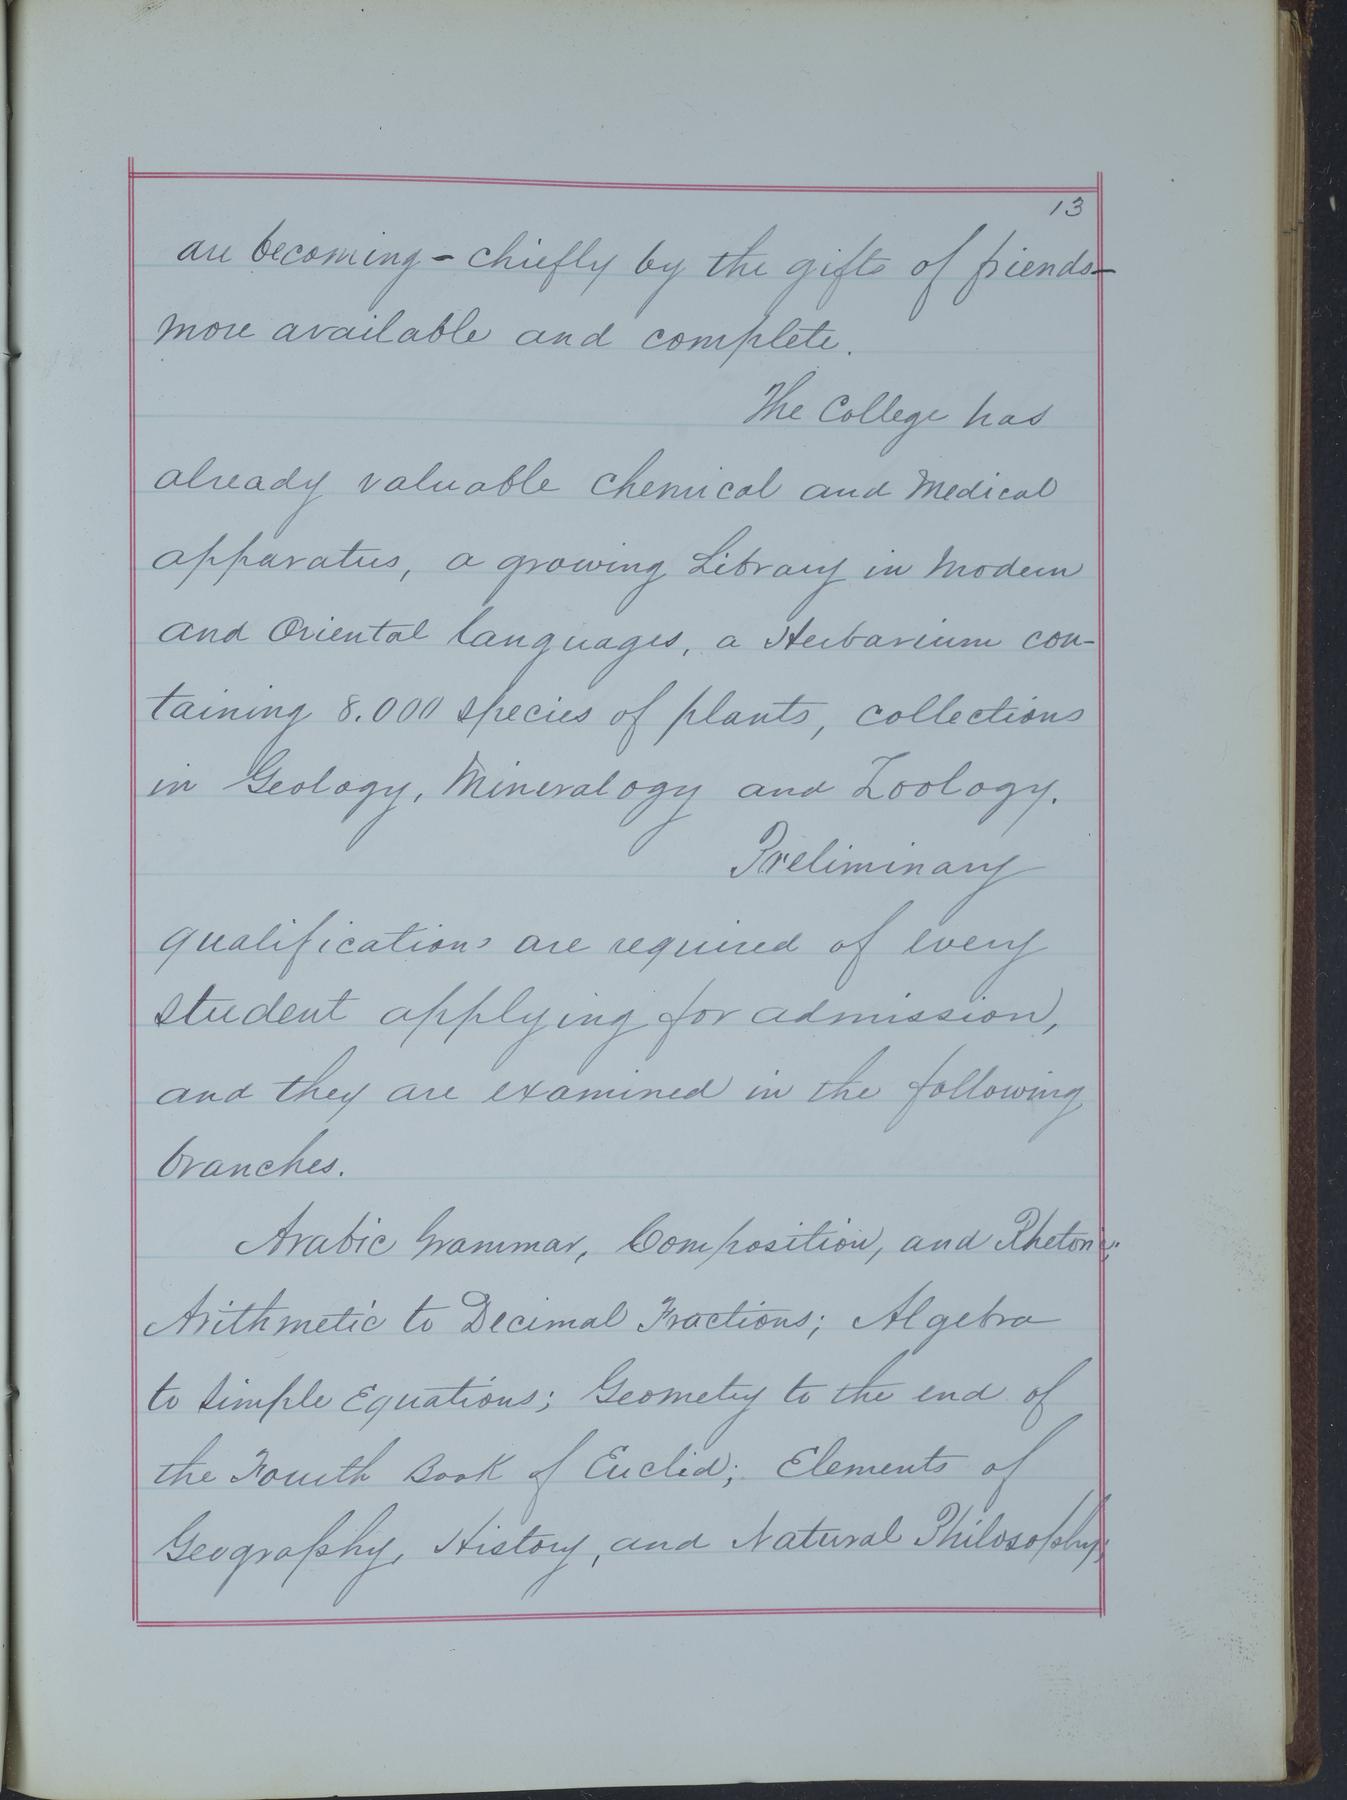 13
are becoming - chiefly by the gifts of friends -
more available and complete.
The College has
already valuable chemical and Medical
apparatus, a growing Library in Modern
and Oriental languages, a Herbarium con-
taining 8.000 species of plants, collections
in Geology, Mineralogy and Zoology.
Preliminary
qualifications are required of every
student applying for admission,
and they are examined in the following
branches.
Arabic Grammar, Composition, and Rhetoric;
Arithmetic to Decimal Fractions; Algebra
to Simple Equations; Geometry to the end of
the Fourth Book of Euclid; Elements of
Geography, History, and Natural Philosophy;